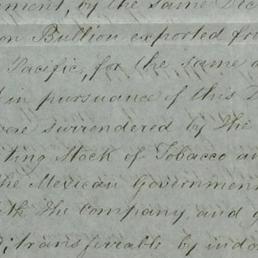 by the same
on Bullion exported
Pacific, for the same
in pursuance of this
surrendered by the
Stock of Tobacco
the Mexican Government
the Company, and
transferrable by